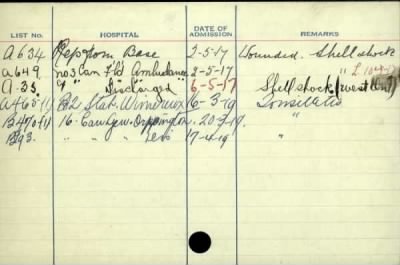 LIST No. HOSPITAL DATE OF ADMISSION REMARKS
A634 Rep from Base 2-5-17 Wounded. Shell shock
A649 No 3 Can F'ld Ambulance 2-5-17 "
A-35 " Discharged 6-5-17 Shell shock
A465(11) 32 Stat. Wimereux 16-3-19 Tonsillitis
B470(1) 16 Can Gen. Orpington 20-3-19 "
B93. " " " Dis 17-4-19 "